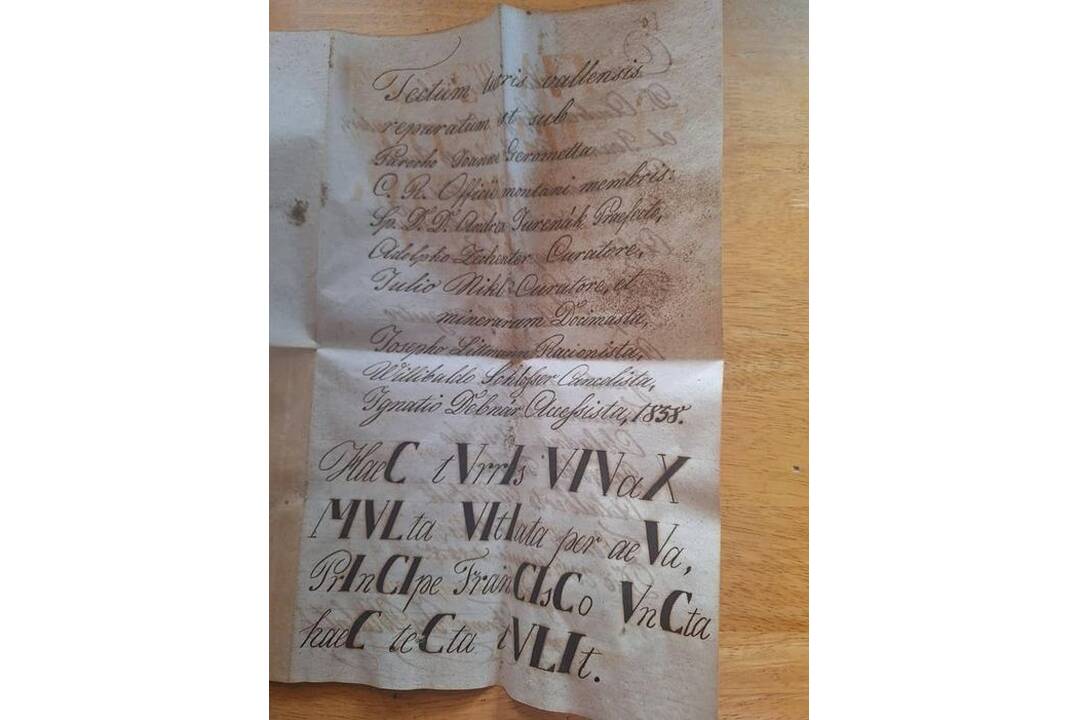 Tectum turris vallensis
reparatum est sub
Parocho Joanne Gerometta
C. R. Officii montani membris:
Sp. D. D. Andrea Jurenák Praefecto,
Adolpho Zechenter Curatore,
Julio Nikl Curatore, et
minerarum Docimasta,
Josepho Littmann Racionista,
Willibaldo Schlosser Cancelista,
Ignatio Debnár Accessista, 1838.
HaeC tVrrIs VIVaX
MVLta VItIata per aeVa,
PrInCIpe FranCIsCo VnCta
haeC teCta tVLIt.